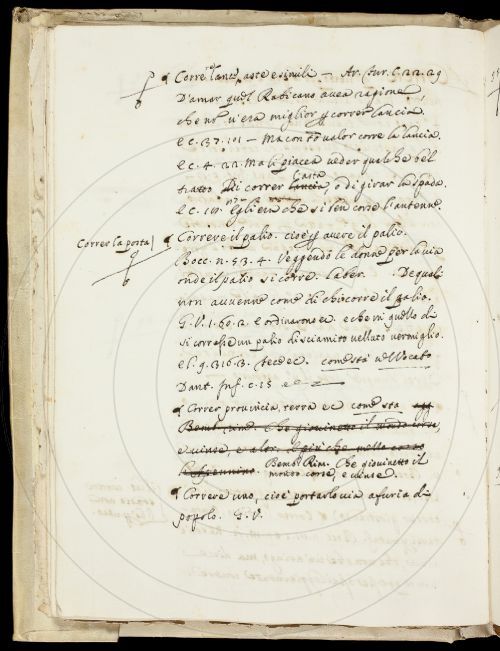 Correr lance, aste e simili — Ar. fur. C. 22. 29
D'amor quel Rabicano avea ragione,
che non v'era miglior per correr lancia.
e c. 37. 101 — Ma con tal valor corre la lancia.
e c. 4. 22. Ma li piacea veder qualche bel
tratto Di correr lancia asta, o di girar la spada.
e c. 19. Egli era che si ben corre l'antenne.
Correr la posta
Correre il palio. cioè per avere il palio.
Bocc. n. 53. 4. Veggendo le donne per la via
onde il palio si corre. Laber. De quali
non avvenne come di chi corre il palio.
G. V. 1. 60. 2. e ordinarono ec. e che in quello dì
si corresse un palio di sciamito velluto vermiglio.
e l. 9. 316. 3. fece ec. come sta nel Vocab.
Dant. Inf. c. 15 e c
Correr provincia, terra e c come sta
Bemb. rime. Che giovinetto il mondo corse,
e vinse,
Bemb. Rim. Che giovinetto il
mondo corse, e vinse.
Correre uno, cioè portarlo via a furia di
popolo. G. V.